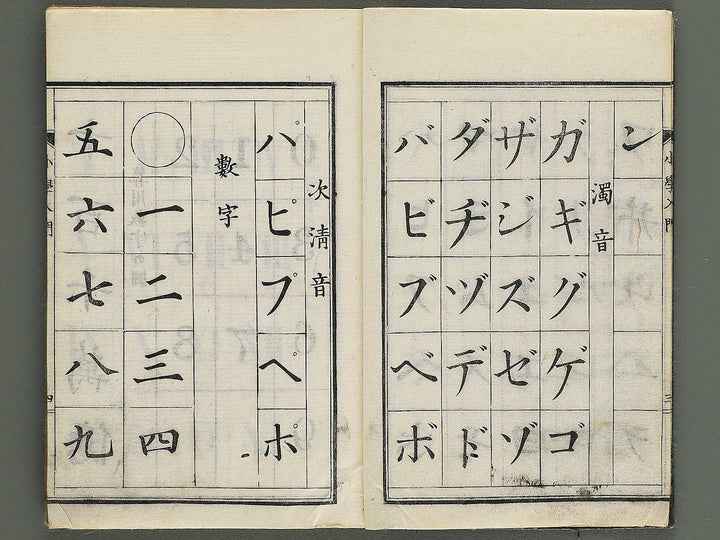 ン
濁音
ガギグゲゴ
ザジズゼゾ
ダヂヅデド
バビブベボ
小學入門
三
次淸音
パピプペポ
數字
〇一二三四
五六七八九
小學入門
四